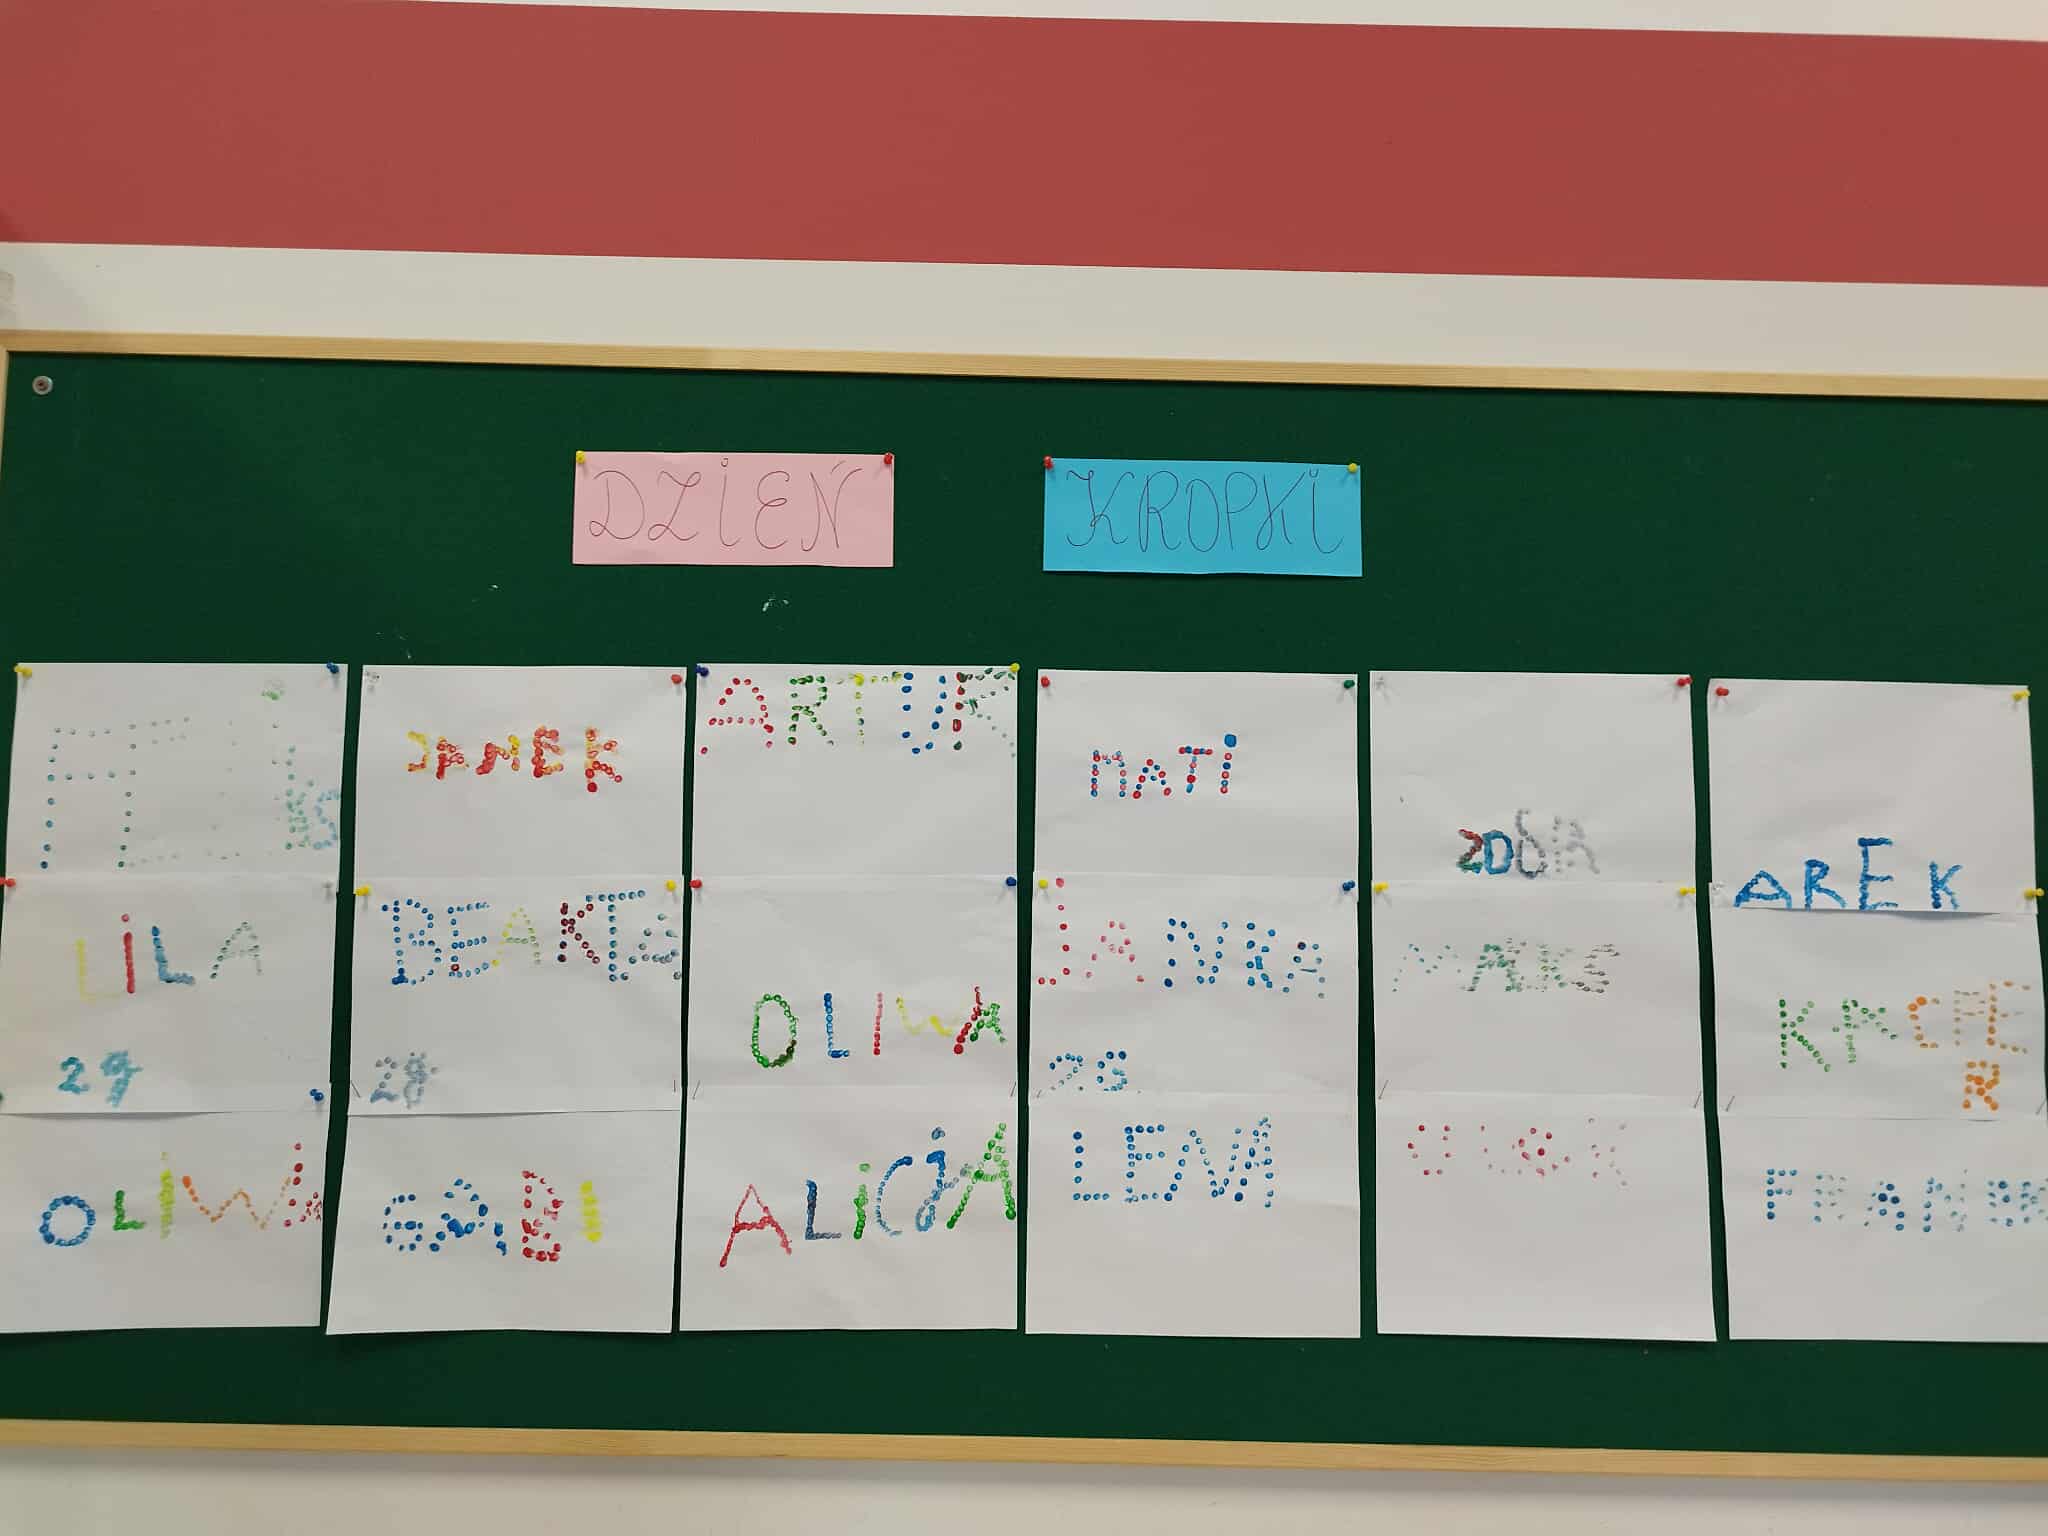 DZIEŃ KROPKI
JANEK
ARTUR
MATI
AREK
LILA
29
BEAKTa
28
OLIWA
JANKA
26
OLIWiA
GABI
ALICJA
LENA
FRANEK